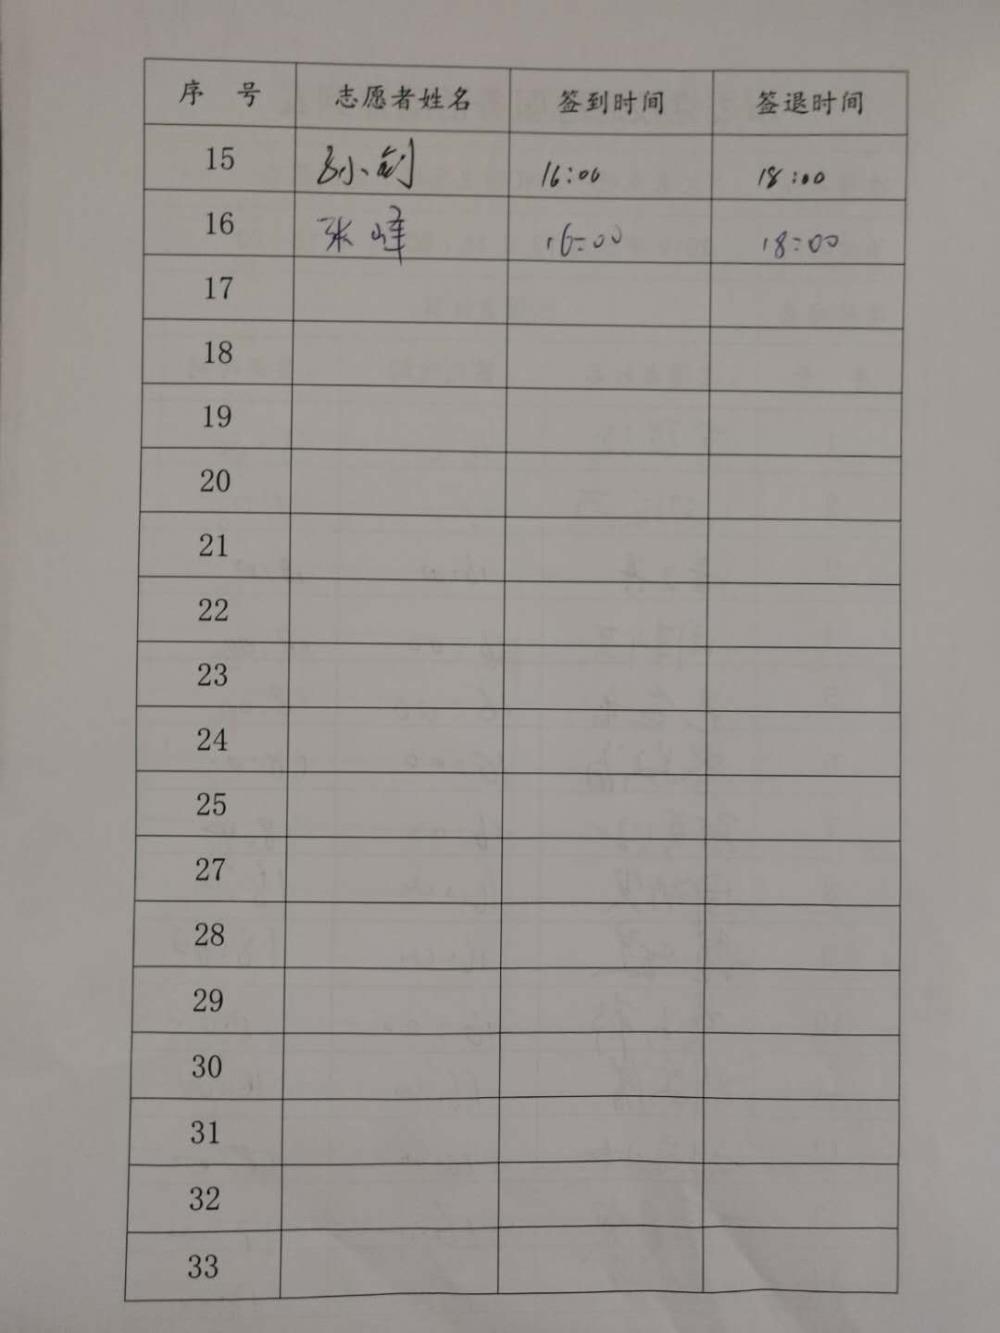 序 号 志愿者姓名 签到时间 签退时间
15 孙剑 16:00 18:00
16 张峰 16:00 18:00
17
18
19
20
21
22
23
24
25
27
28
29
30
31
32
33